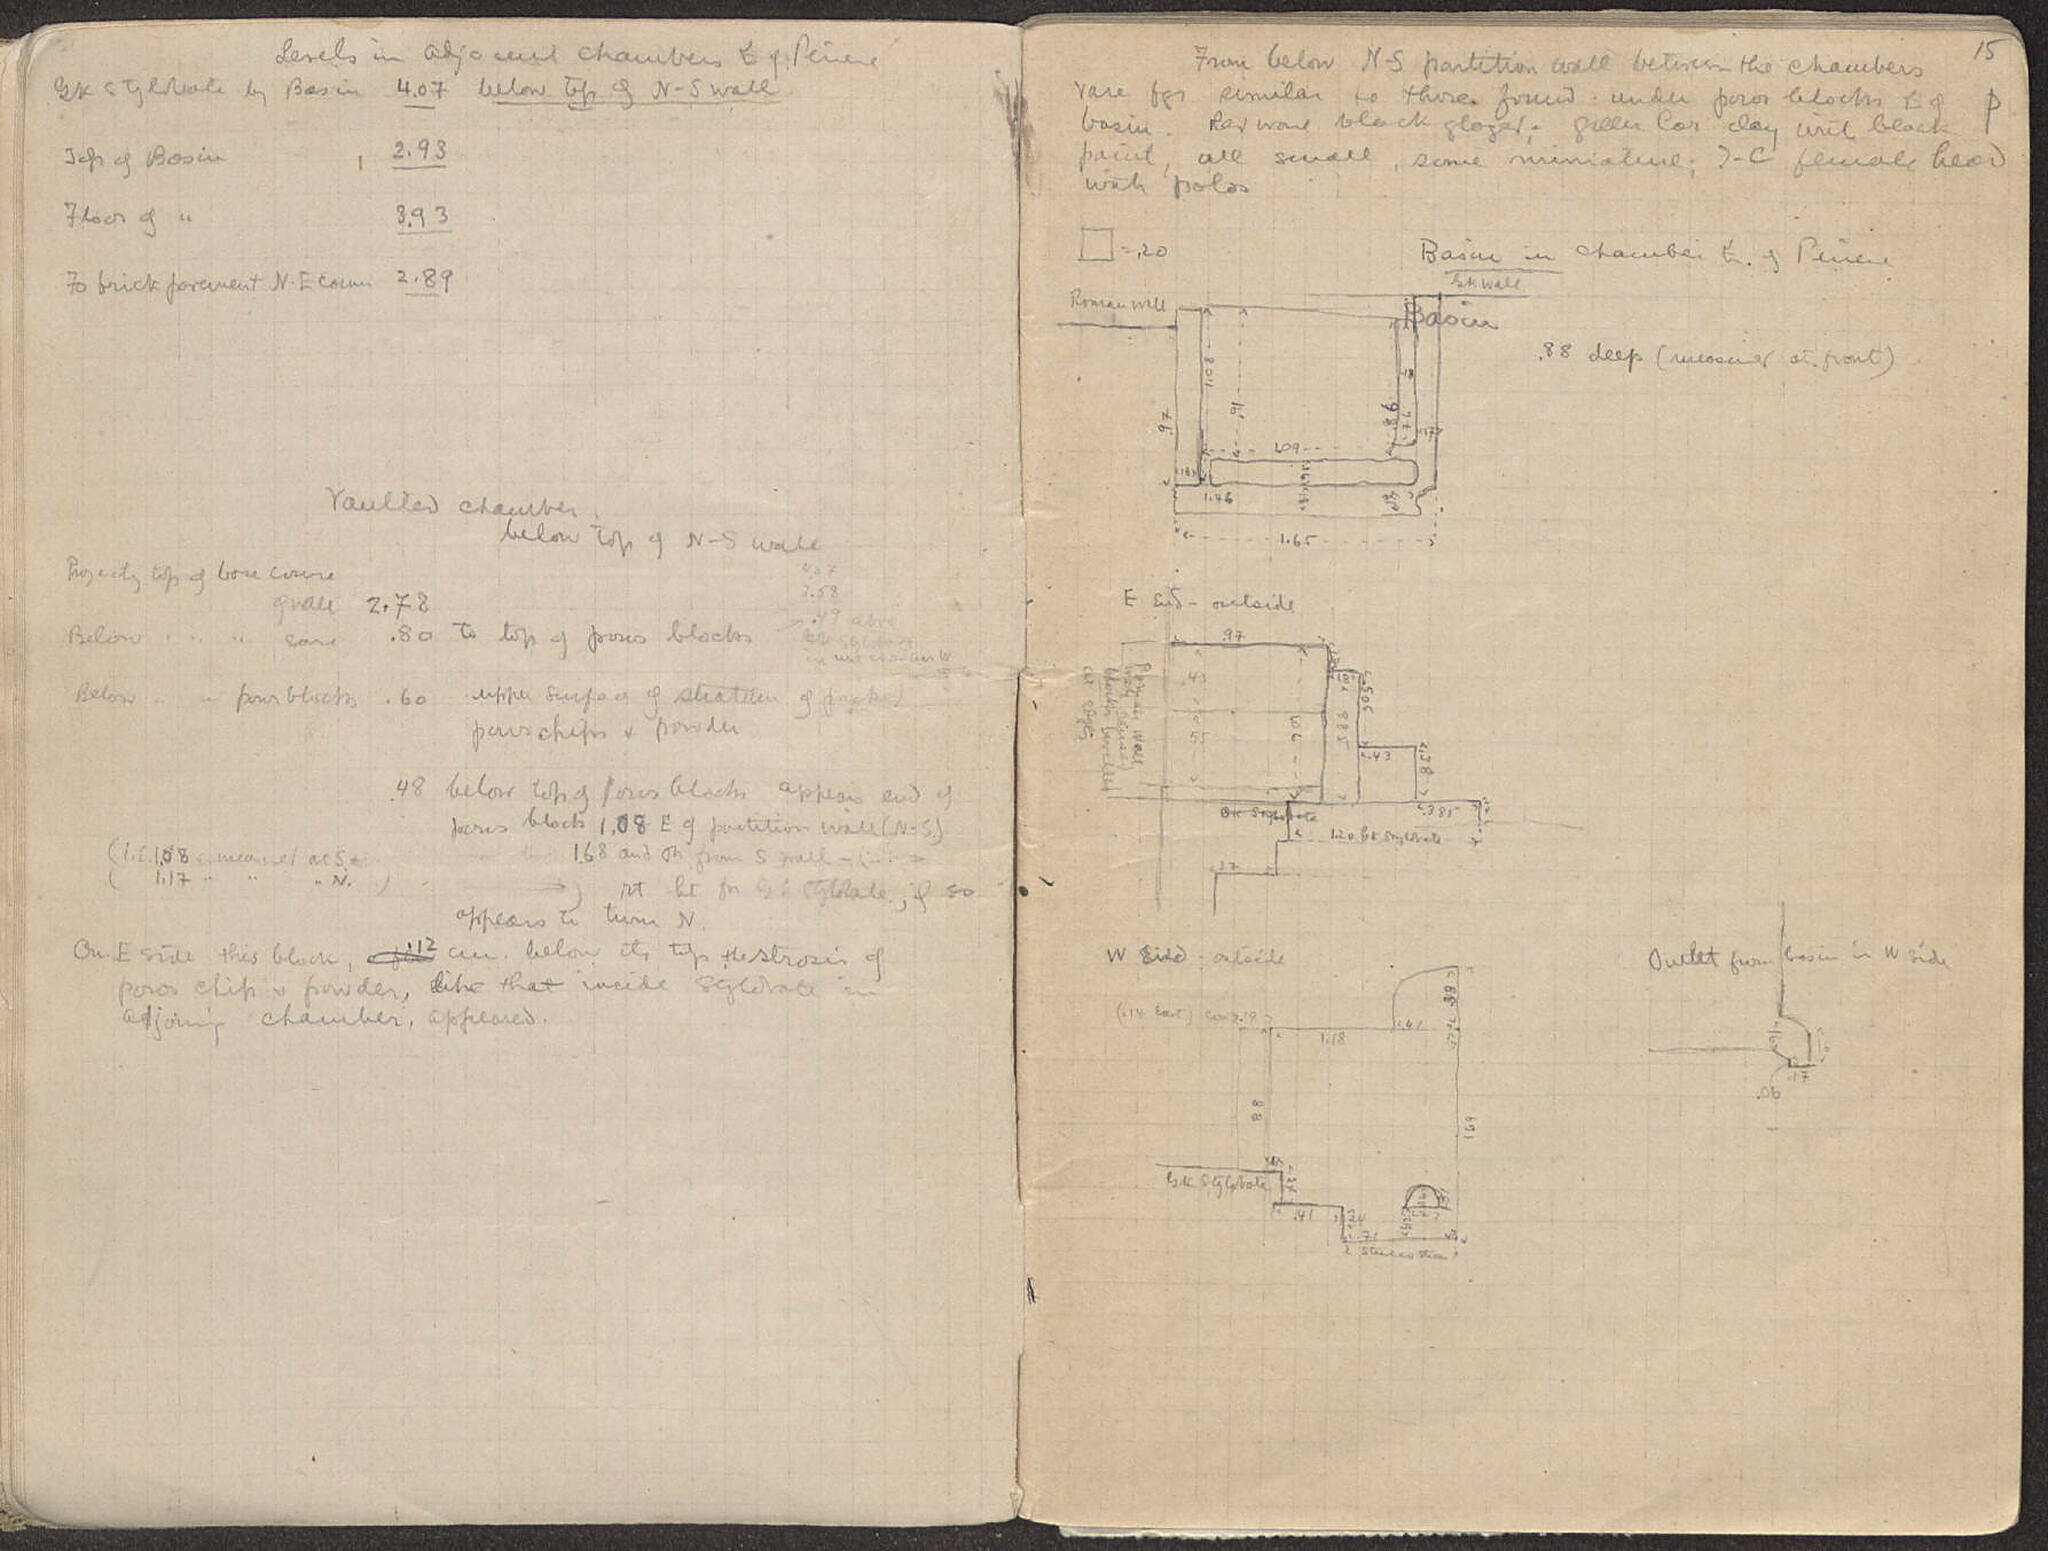 Levels in adjacent chambers E of Pirene
Gk Stylobate by Basin 4.07 below top of N-S wall
Top of Basin 2.93
Floor of " 3.93
To brick pavement N.E corner 2.89
Vaulted chamber.
below top of N-S wall
Projecting top of base course
of wall 2.78
4.07
3.58
.49 above
Below " " " same .80 to top of poros blocks
Gk Stylobate
in
Below " " poros blocks .60 upper surface of stratum of packed
poros chips & powder
.48 below top of poros blocks appears end of
poros block 1.08 E of partition wall (N-S)
(i.e. 1.08 measured at S.
1.68 and from S wall
( 1.17 " " " N. )
rt ht for Gk Stylobate, if so
appears to turn N.
On E side this block, .12 cm. below its top the strosis of
poros chip & powder, like that inside Stylobate in
adjoining chamber, appeared.
15
From below N-S partition wall between the chambers
vase fgs similar to those found under poros blocks E of P
basin. Red ware black glazed; yellow Cor clay with black
paint, all small, some miniature; T-C female head
with polos
= .20
Basin in chamber E. of Pirene
Gk wall
Roman wall
Basin
.88 deep (measured at front)
1.08
.91
.97
.98
.77
.17
1.09
.18
1.46
1.65
E End - outside
.97
.43
.55
.98
.885
.505
.43
.38
Roman wall
Gk Stylobate
.385
1.20 Gk Stylobate
.37
W Side - outside
Outlet from basin in W side
.88
(.14 East)
.41
1.18
.16
.17
.06
.88
1.69
Gk Stylobate
.41
.24
.71